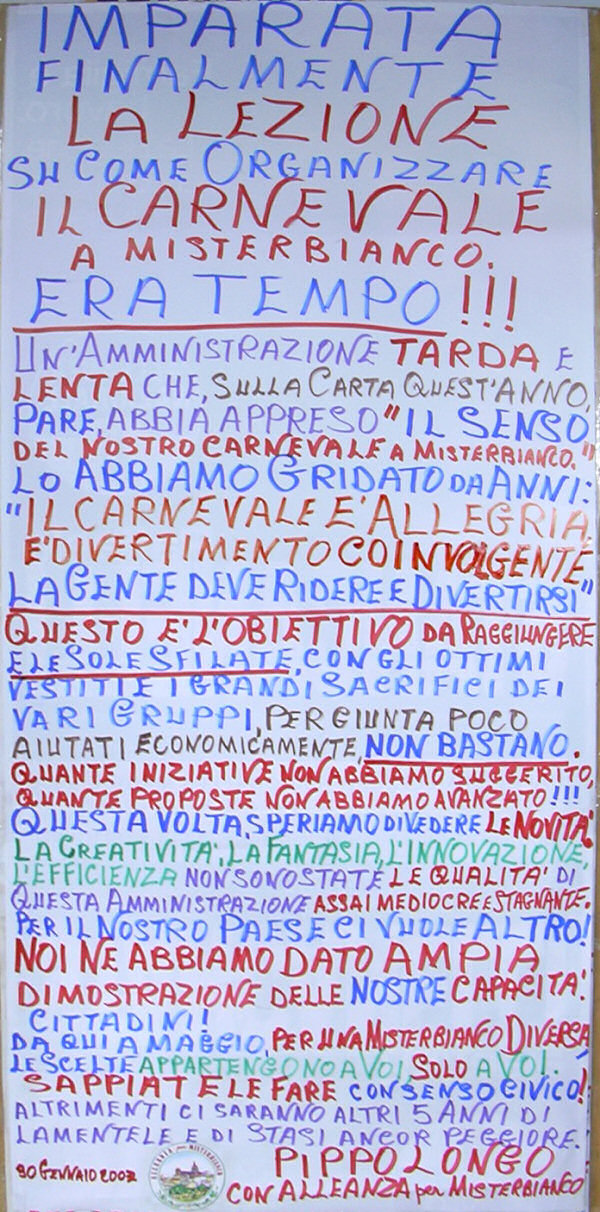 IMPARATA
FINALMENTE
LA LEZIONE
SU COME ORGANIZZARE
IL CARNEVALE
A MISTERBIANCO.
ERA TEMPO!!!
UN'AMMINISTRAZIONE TARDA E
LENTA CHE, SULLA CARTA QUEST'ANNO,
PARE, ABBIA APPRESO "IL SENSO
DEL NOSTRO CARNEVALE A MISTERBIANCO."
LO ABBIAMO GRIDATO DA ANNI:
"IL CARNEVALE E' ALLEGRIA
E' DIVERTIMENTO COINVOLGENTE
LA GENTE DEVE RIDERE E DIVERTIRSI"
QUESTO E' L'OBIETTIVO DA RAGGIUNGERE
E LE SOLE SFILATE, CON GLI OTTIMI
VESTITI E I GRANDI SACRIFICI DEI
VARI GRUPPI, PER GIUNTA POCO
AIUTATI ECONOMICAMENTE, NON BASTANO.
QUANTE INIZIATIVE NON ABBIAMO SUGGERITO,
QUANTE PROPOSTE NON ABBIAMO AVANZATO!!!
QUESTA VOLTA, SPERIAMO DI VEDERE LE NOVITA'
LA CREATIVITA', LA FANTASIA, L'INNOVAZIONE,
L'EFFICIENZA NON SONO STATE LE QUALITA' DI
QUESTA AMMINISTRAZIONE ASSAI MEDIOCRE E STAGNANTE.
PER IL NOSTRO PAESE CI VUOLE ALTRO!
NOI NE ABBIAMO DATO AMPIA
DIMOSTRAZIONE DELLE NOSTRE CAPACITA'.
CITTADINI!
DA QUI A MAGGIO, PER UNA MISTERBIANCO DIVERSA,
LE SCELTE APPARTENGONO A VOI, SOLO A VOI.
SAPPIATELE FARE CON SENSO CIVICO!
ALTRIMENTI CI SARANNO ALTRI 5 ANNI DI
LAMENTELE E DI STASI ANCOR PEGGIORE.
30 GENNAIO 2002 PIPPO LONGO
CON ALLEANZA per MISTERBIANCO